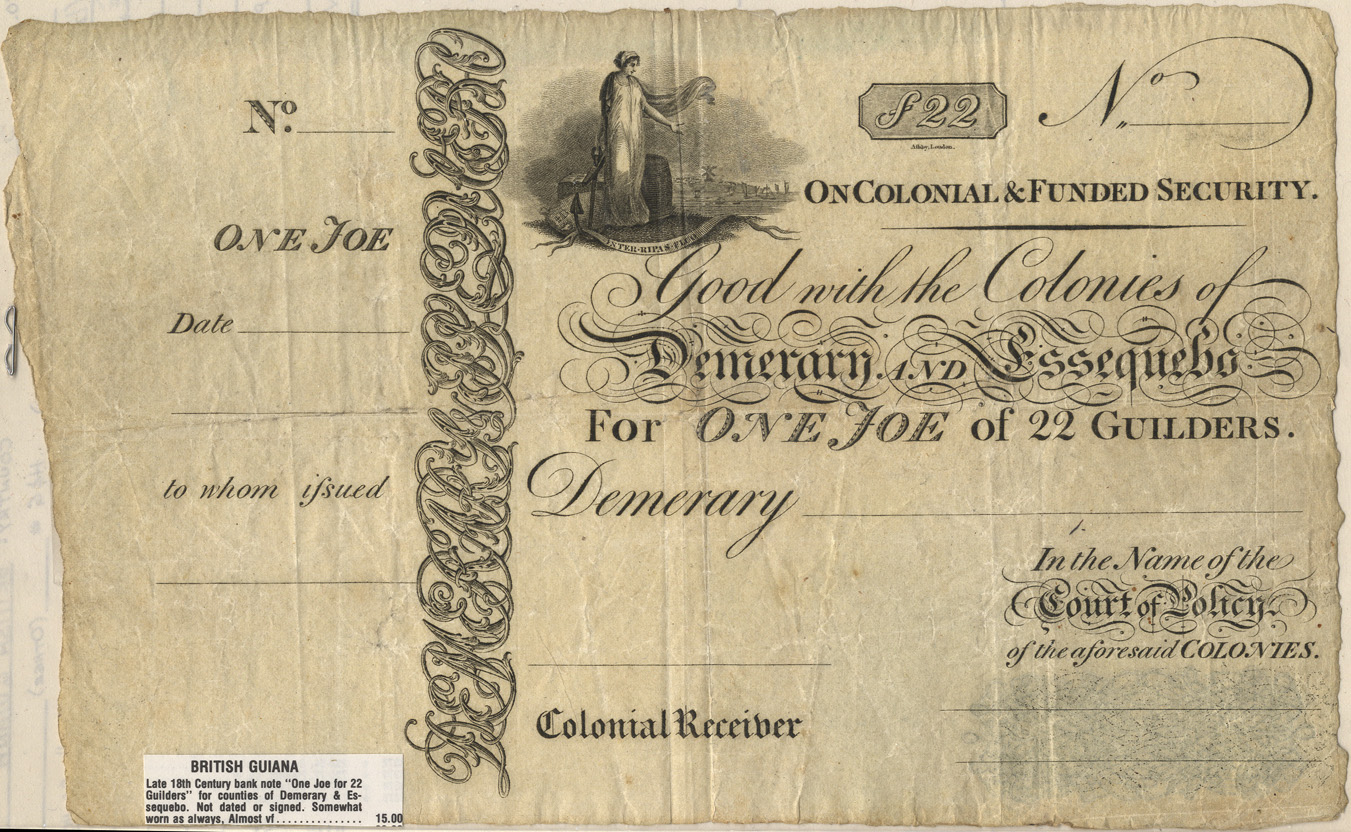 Nº.
ONE JOE
Date
to whom iſsued
DEMERARY & ESSEQUEBO
INTER·RIPAS·
ƒ22
Ashby, London.
Nº
ON COLONIAL & FUNDED SECURITY.
Good with the Colonies of
Demerary AND Essequebo
For ONE JOE of 22 GUILDERS.
Demerary
In the Name of the
Court of Policy.
of the aforesaid COLONIES.
Colonial Receiver
BRITISH GUIANA
Late 18th Century bank note "One Joe for 22
Guilders" for counties of Demerary & Es-
sequebo. Not dated or signed. Somewhat
worn as always, Almost vf............... 15.00